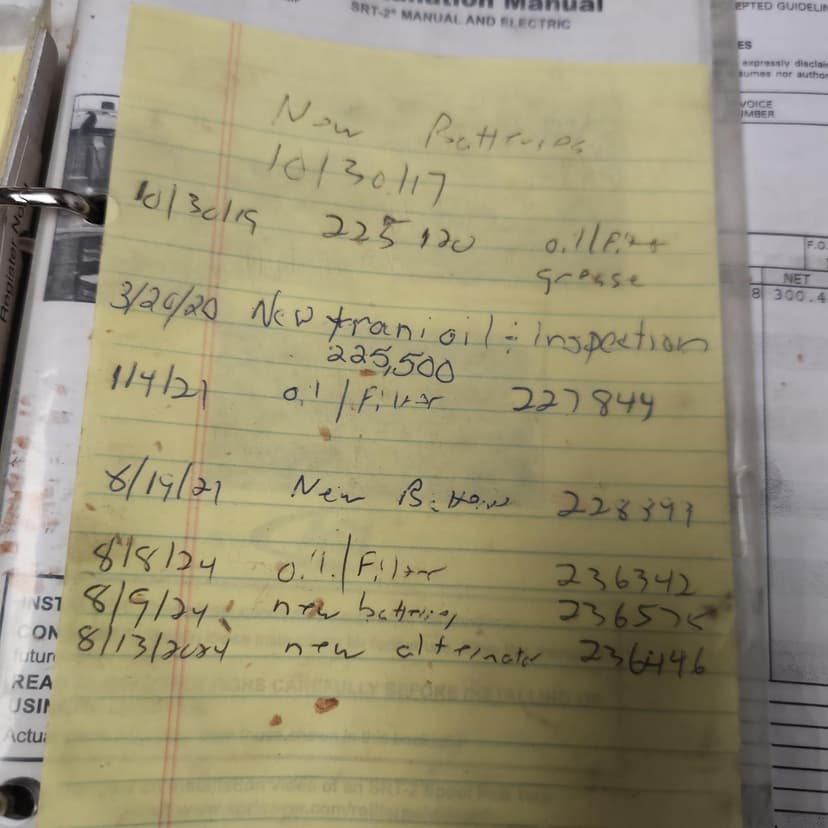 Manual
SRT-2® MANUAL AND ELECTRIC
EPTED GUIDELIN
ES
expressly disclai
sumes nor author
VOICE
MBER
F.O.
NET
8 300.4
Register Now
New Batteries
10/30/17
10/30/19 225120 oil/Filter
grease
3/20/20 New trani oil - inspection
225,500
1/4/21 oil/Filter 227844
8/19/21 New Batteries 228393
8/8/24 oil/Filter 236342
8/9/24 new batteries 236575
8/13/2024 new alternator 236446
INST
CON
futur
REA
USIN
Actua
CAREFULLY BEFORE INSTALLING